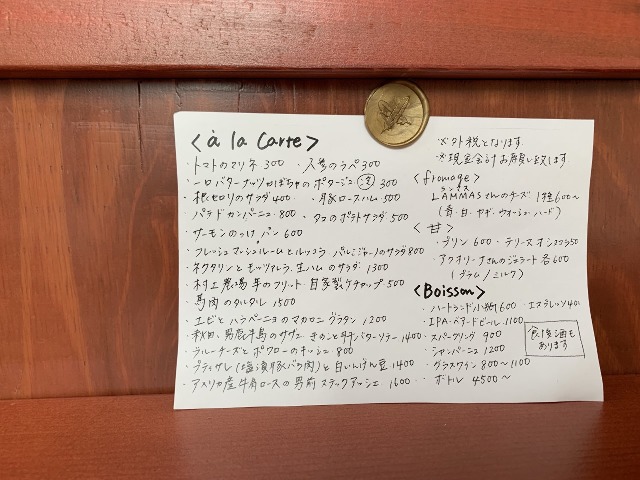 <à la carte>
・トマトのマリネ 300 ・人参のラペ 300
・一口バターナッツかぼちゃのポタージュ(冷) 300
・根セロリのサラダ 400 ・豚ロースハム 500
・パテドカンパーニュ 800 ・タコのポテトサラダ 500
・サーモンのっけパン 600
・フレッシュマッシュルームとルッコラ パルミジャーノのサラダ 800
・ネクタリンとモッツァレラ、生ハムのサラダ 1300
・村上農場 芋のフリット 自家製ケチャップ 500
・馬肉のタルタル 1500
・エビとハラペーニョのマカロニグラタン 1200
・秋田、男鹿半島のサザエ きのこと肝バターソテー 1400
・ラルーチーズとポワローのキッシュ 800
・プティサレ(塩漬豚バラ肉)と白いんげん豆 1400
・アメリカ産牛肩ロースの男前ステックアッシェ 1600
※外税となります
※現金会計お願い致します
<fromage>
ランマス
LAMMASさんのチーズ 1種600〜
(青・白・ヤギ・ウォッシュ・ハード)
<甘>
・プリン 600 ・テリーヌオショコラ 50
・アクオリーナさんのジェラート 各600
(グラム/ミルク)
<Boisson>
・ハートランド小瓶 600 ・エストレジャ
・IPA・ペールビール 1100
・スパークリング 900
・シャンパーニュ 1200
・グラスワイン 800〜1100
・ボトル 4500〜
食後酒も
あります